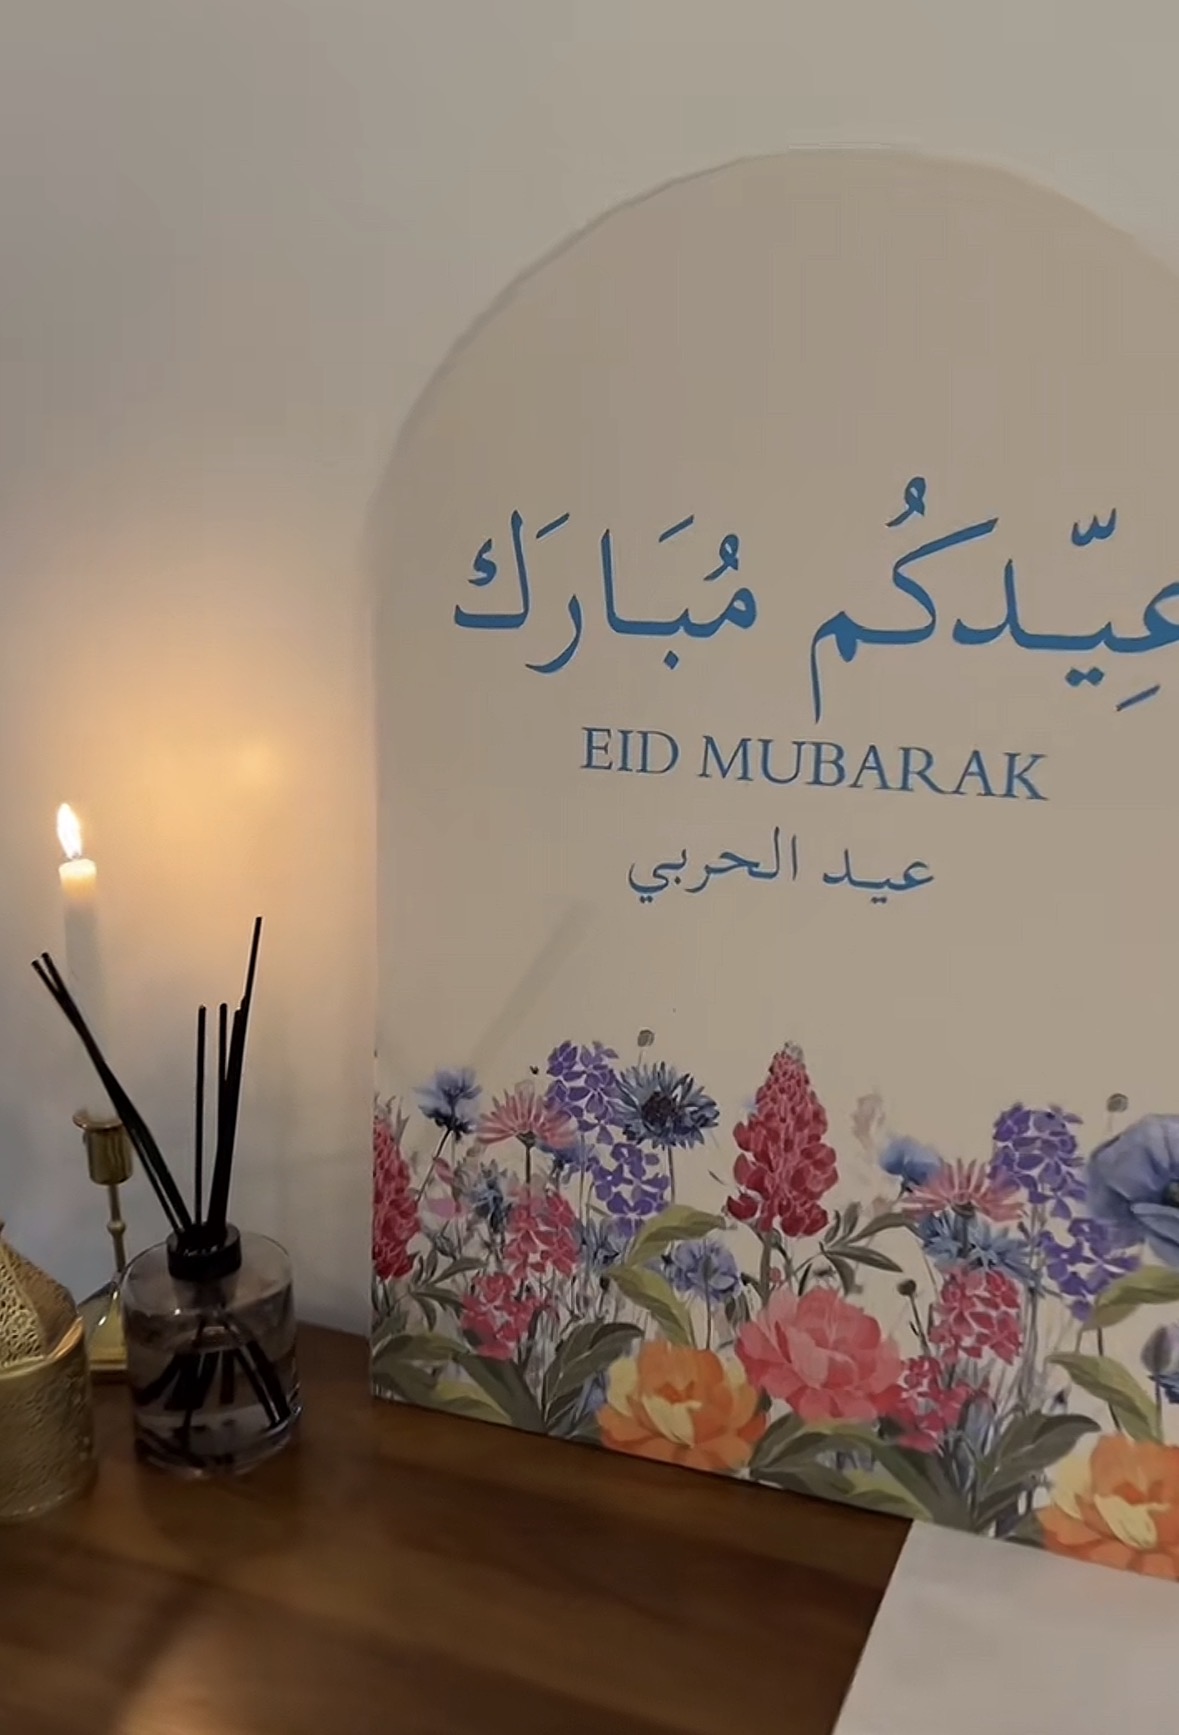 عِيّدكُم مُبَارَك
EID MUBARAK
عيد الحربي